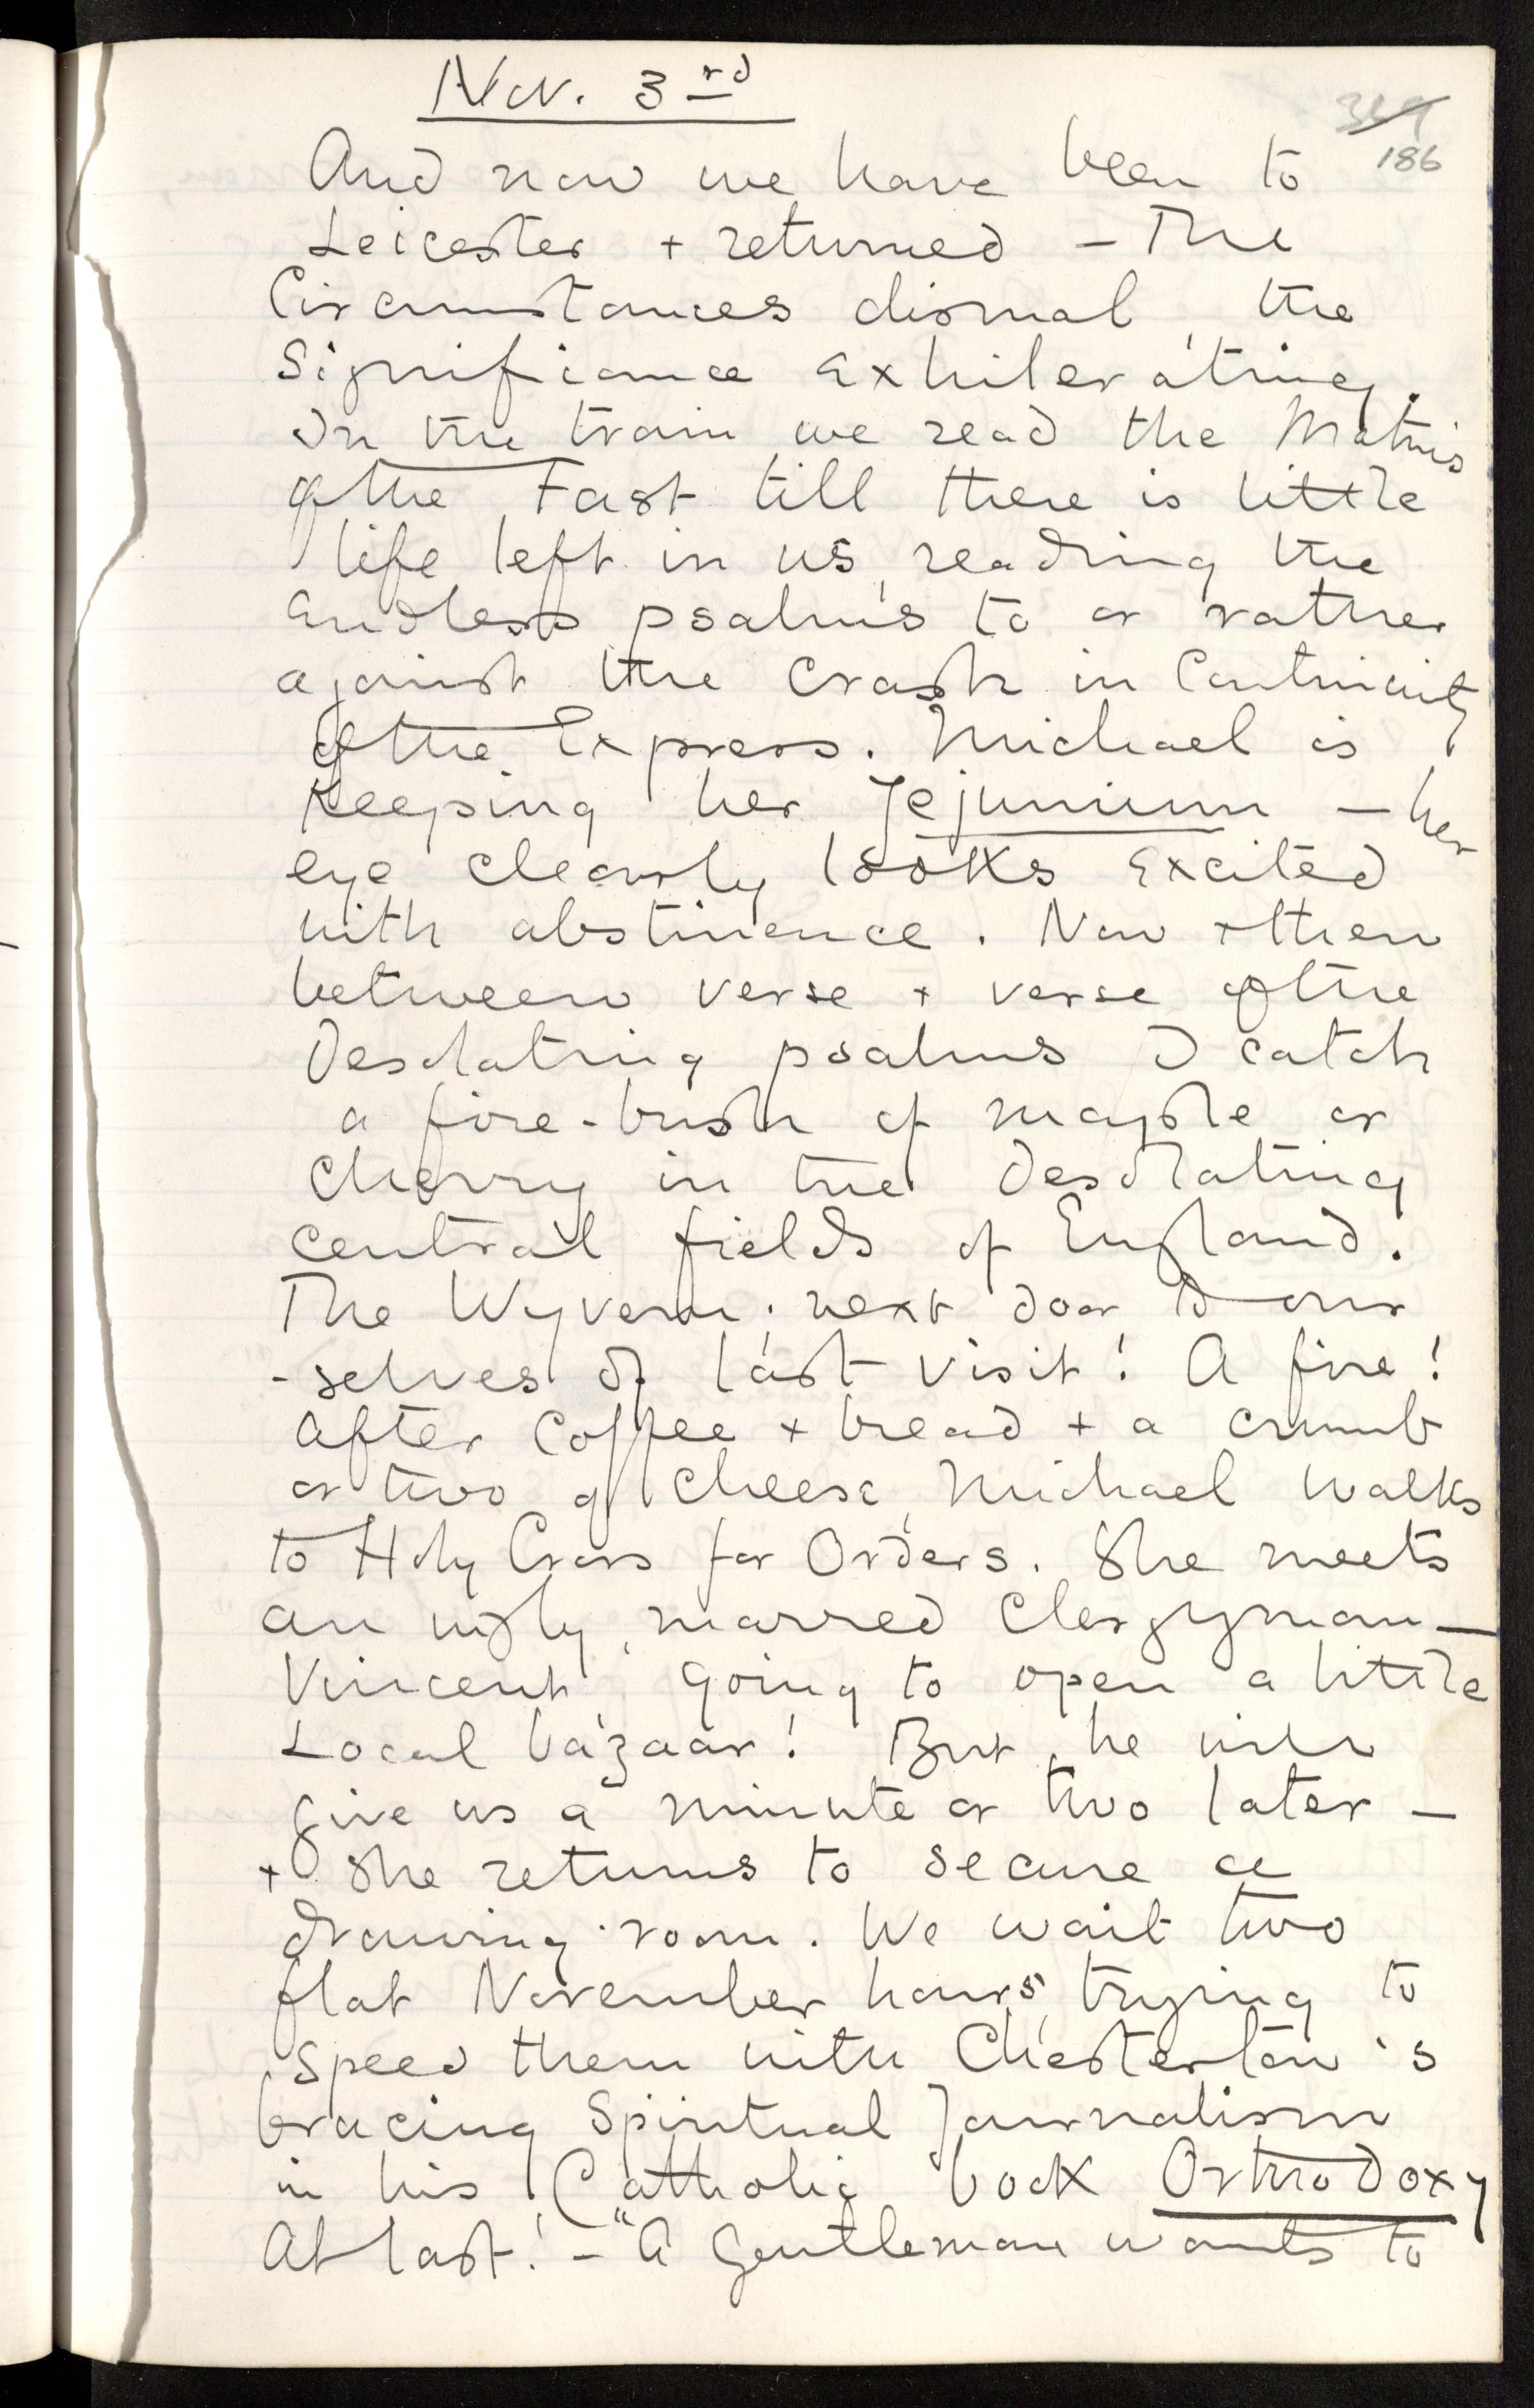 Nov. 3rd
369
186
And now we have been to
Leicester + returned – The
Circumstances dismal, the
Significance exhilerating.
In the train we read the Matins
of the Feast till there is little
life left in us, reading the
endless psalms to or rather
against the crash in Continuity
of the Express. Michael is
Keeping her Jejunium – her
eye clearly looks excited
with abstinence. Now + then
between verse + verse of the
Desolating psalms I catch
a fire-bush of maple or
Cherry in the Desolating
central fields of England.
The Wyvern; next door to our
-selves of last visit! A fire!
After Coffee + bread + a crumb
or two of cheese, Michael walks
to Holy Cross for Orders. She meets
an ugly, marred Clergyman –
Vincent, going to open a little
Local bazaar! But he will
give us a minute or two later –
+ she returns to secure a
drawing-room. We wait two
flat November hours, trying to
speed them with Chesterton's
bracing Spiritual Journalism
in his Catholic book Orthodoxy
At last! – "A Gentleman wants to